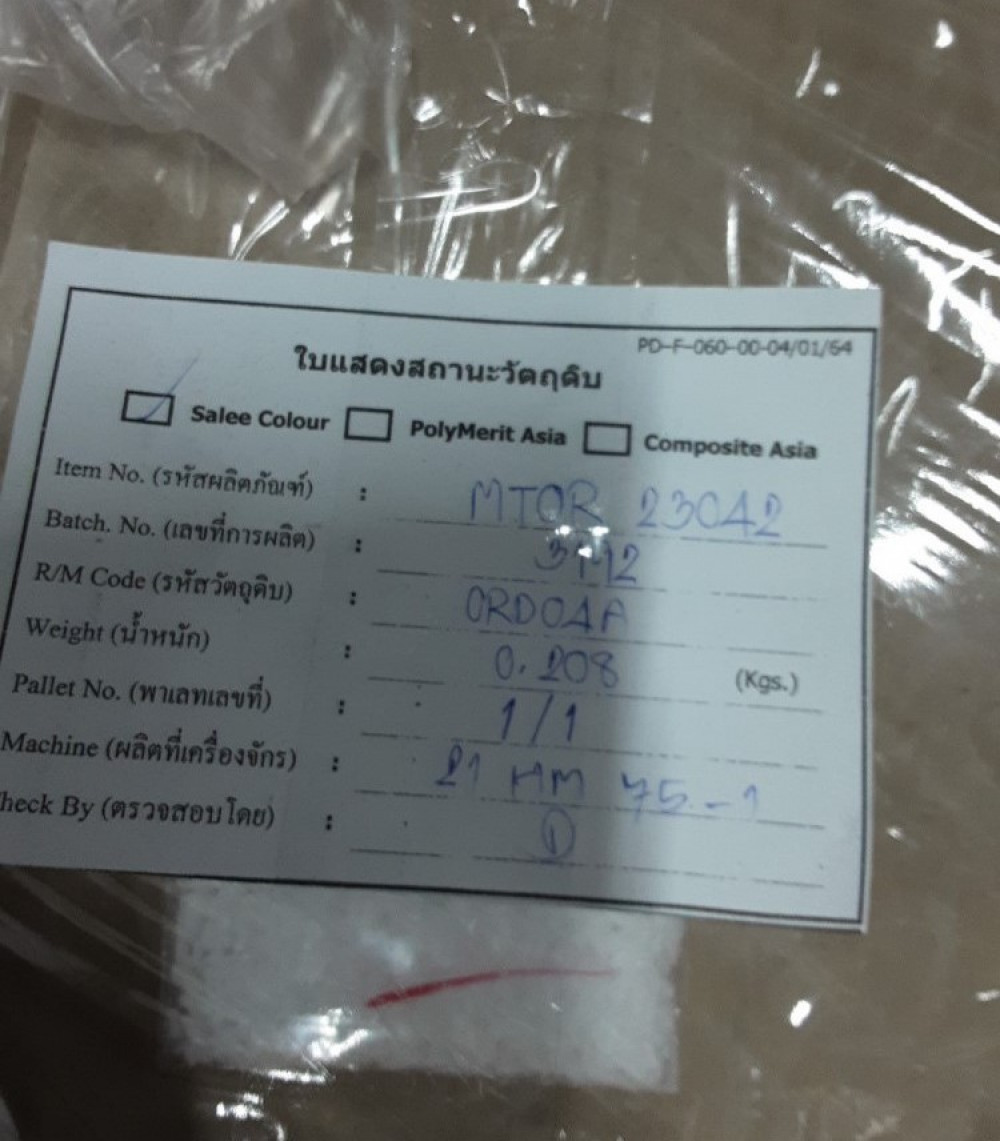 PD-F-060-00-04/01/64
ใบแสดงสถานะวัตถุดิบ
Salee Colour PolyMerit Asia Composite Asia
Item No. (รหัสผลิตภัณฑ์) : MTOR 23042
Batch. No. (เลขที่การผลิต) :
R/M Code (รหัสวัตถุดิบ) : ORD04A
Weight (น้ำหนัก) : 0.208 (Kgs.)
Pallet No. (พาเลทเลขที่) : 1/1
Machine (ผลิตที่เครื่องจักร) : 21 HM 75-1
heck By (ตรวจสอบโดย) :